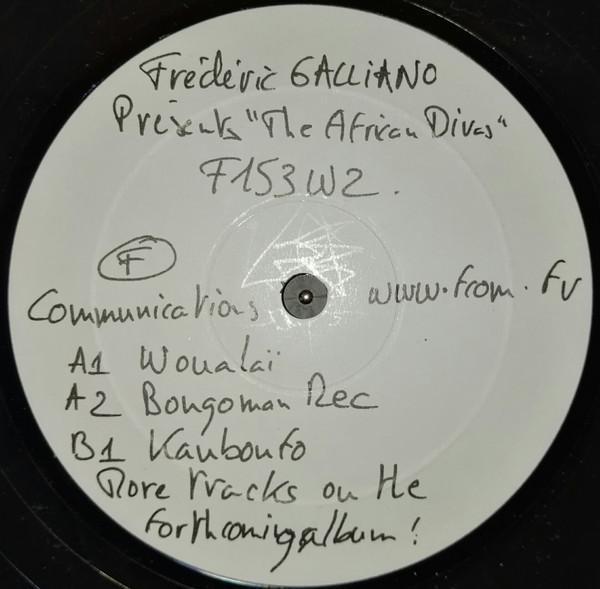 Frédéric GALLIANO
Présents "The African Divas"
F153W2.
F
Communications
www.fcom.fr
A1 Woualaï
A2 Bongoman Rec
B1 Kanbonfo
More Tracks on the
forthcoming album!